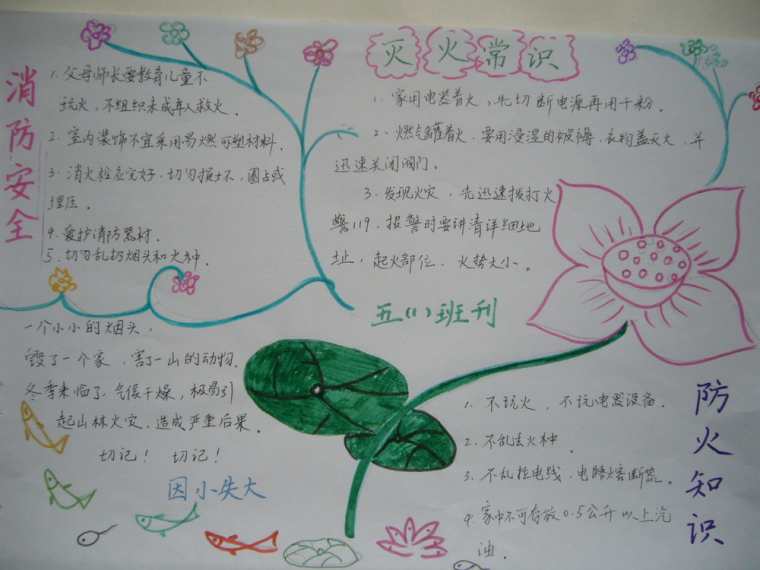 消防安全
1. 父母师长要教育儿童不
玩火，不组织未成年人救火．
2. 室内装饰不宜采用易燃可塑材料．
3. 消火栓应完好，切勿损坏、圈占或
埋压。
4. 爱护消防器材．
5. 切勿乱扔烟头和火种．
灭火常识
1. 家用电器着火，先切断电源再用干粉．
2. 燃气罐着火，要用浸湿的被褥、衣物盖灭火，并
迅速关闭阀门。
3. 发现火灾，先迅速拨打火
警119．报警时要讲清详细地
址，起火部位、火势大小。
五(1)班刊
一个小小的烟头，
毁了一个家、害了一山的动物．
冬季来临了，气候干燥，极易引
起山林火灾，造成严重后果．
切记！ 切记！
因小失大
防火知识
1. 不玩火，不玩电器设备．
2. 不乱丢火种．
3. 不乱拉电线，电路熔断器．
4. 家中不可存放0.5公升以上汽
油．